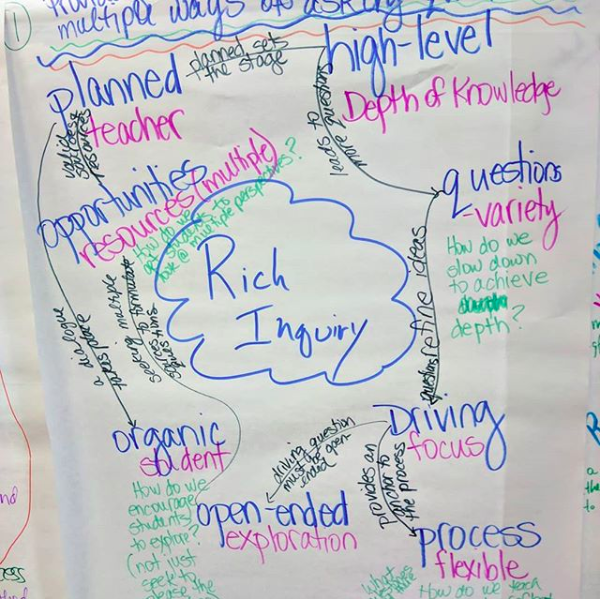 1
multiple ways of asking
planned
teacher
planned sets
the stage
high-level
Depth of Knowledge
leads to
more questions
questions
-variety
How do we
slow down
to achieve
depth?
opportunities
resources (multiple)
How do we
get students to
look @ multiple perspectives?
Rich
Inquiry
refine ideas
questions
a dialogue
seeking multiple
sources to formulate
organic
student
How do we
encourage
students
to explore?
(not just
seek to
please the
driving question
must be open
ended
open-ended
exploration
Driving
focus
provides an
anchor to
the process
process
flexible
How do we teach
What